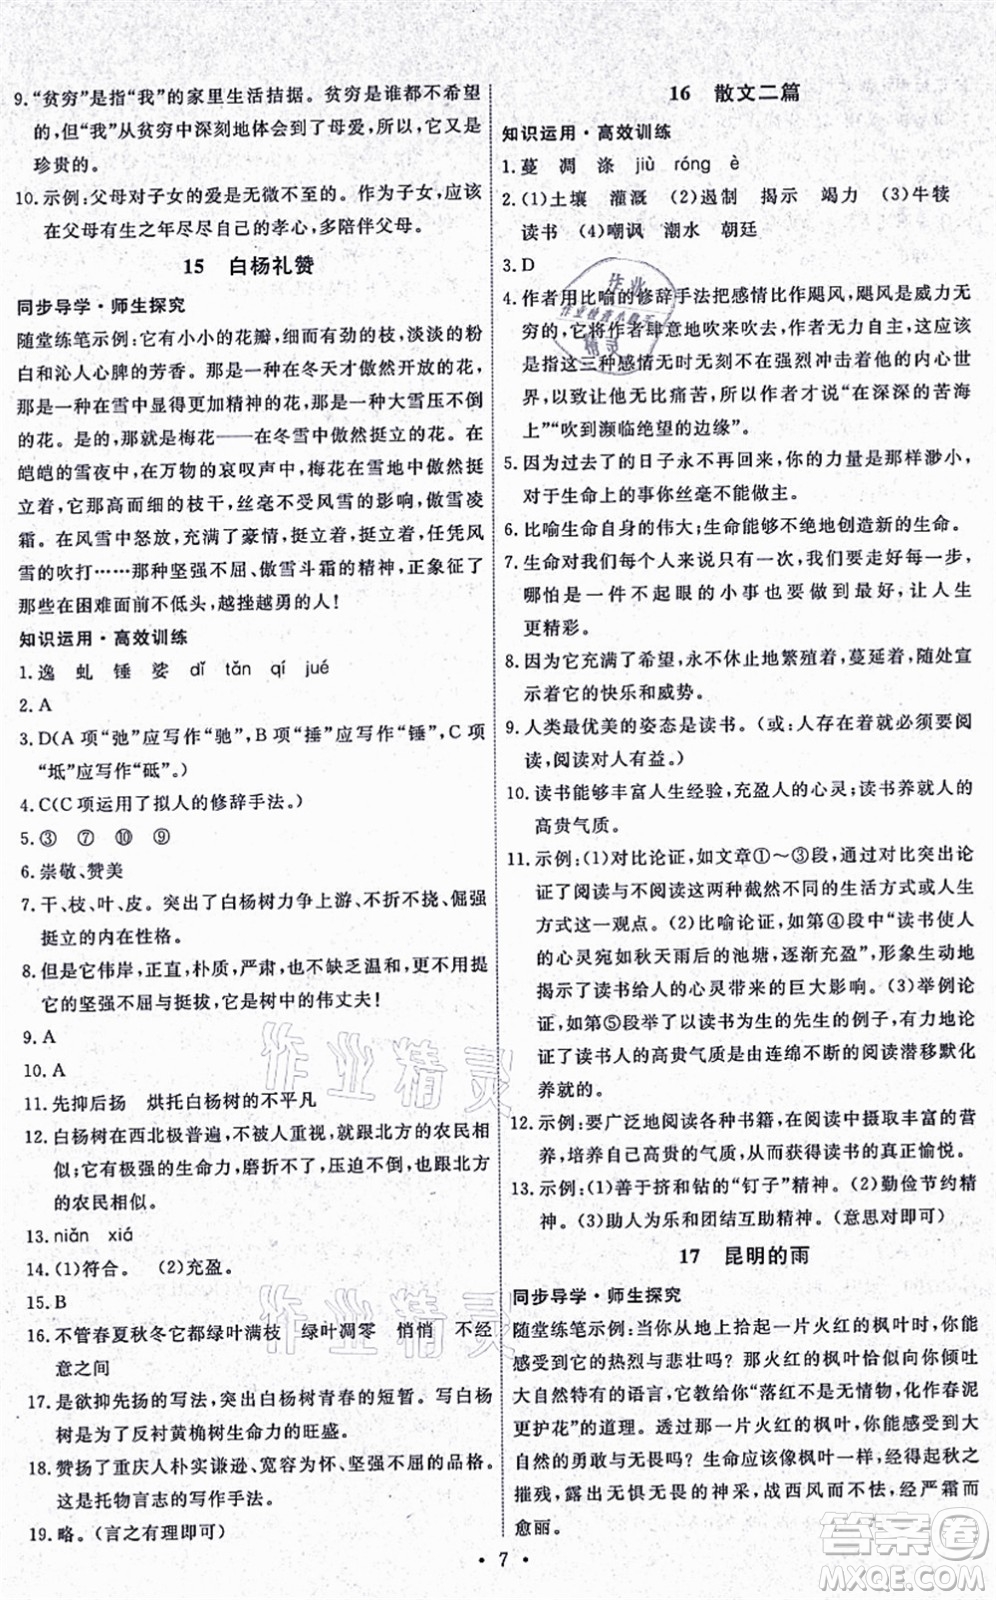 9. “贫穷”是指“我”的家里生活拮据。贫穷是谁都不希望
的，但“我”从贫穷中深刻地体会到了母爱，所以，它又是
珍贵的。
10. 示例：父母对子女的爱是无微不至的。作为子女，应该
在父母有生之年尽尽自己的孝心，多陪伴父母。
15 白杨礼赞
同步导学·师生探究
随堂练笔示例：它有小小的花瓣，细而有劲的枝干，淡淡的粉
白和沁人心脾的芳香。那是一种在冬天才傲然开放的花，
那是一种在雪中显得更加精神的花，那是一种大雪压不倒
的花。是的，那就是梅花——在冬雪中傲然挺立的花。在
皑皑的雪夜中，在万物的哀叹声中，梅花在雪地中傲然挺
立着，它那高而细的枝干，丝毫不受风雪的影响，傲雪凌
霜。在风雪中怒放，充满了豪情，挺立着，挺立着，任凭风
雪的吹打……那种坚强不屈、傲雪斗霜的精神，正象征了
那些在困难面前不低头，越挫越勇的人！
知识运用·高效训练
1. 逸 虬 锤 娑 dǐ tǎn qí jué
2. A
3. D（A 项“弛”应写作“驰”，B 项“捶”应写作“锤”，C 项
“坻”应写作“砥”。）
4. C（C 项运用了拟人的修辞手法。）
5. ③ ⑦ ⑩ ⑨
6. 崇敬、赞美
7. 干、枝、叶、皮。突出了白杨树力争上游、不折不挠、倔强
挺立的内在性格。
8. 但是它伟岸，正直，朴质，严肃，也不缺乏温和，更不用提
它的坚强不屈与挺拔，它是树中的伟丈夫！
9. A
10. A
11. 先抑后扬 烘托白杨树的不平凡
12. 白杨树在西北极普遍，不被人重视，就跟北方的农民相
似；它有极强的生命力，磨折不了，压迫不倒，也跟北方
的农民相似。
13. niǎn xiá
14. （1）符合。 （2）充盈。
15. B
16. 不管春夏秋冬它都绿叶满枝 绿叶凋零 悄悄 不经
意之间
17. 是欲抑先扬的写法，突出白杨树青春的短暂。写白杨
树是为了反衬黄桷树生命力的旺盛。
18. 赞扬了重庆人朴实谦逊、宽容、坚韧、向上的品格。
这是托物言志的写作手法。
19. 略。（言之有理即可）
16 散文二篇
知识运用·高效训练
1. 蔓 凋 涤 jiù róng è
2. （1）土壤 灌溉 （2）遏制 揭示 竭力 （3）牛犊
读书 （4）嘲讽 潮水 朝廷
3. D
4. 作者用比喻的修辞手法把感情比作飓风，飓风是威力无
穷的，它将作者肆意地吹来吹去，作者无力自主，这应该
是指这三种感情无时无刻不在强烈冲击着他的内心世
界，以致有时候他无比痛苦，所以作者才说“在深深的苦海
上”“吹到濒临绝望的边缘”。
5. 因为过去了的日子永不再回来，你的力量是那样渺小，
对于生命上的事你丝毫不能做主。
6. 比喻生命自身的伟大；生命能够不绝地创造新的生命。
7. 生命对于我们每个人来说只有一次，我们要走好每一步，
哪怕是一件不起眼的小事也要尽力做好，让人生
更精彩。
8. 因为它充满了希望，永不休止地繁殖着，蔓延着，随处宣
示着它的快乐和威势。
9. 人类最优美的姿态是读书。（或：人存在着就必须要阅
读，阅读对人有益。）
10. 读书能够丰富人生经验，充盈人的心灵；读书养就人的
高贵气质。
11. 示例：（1）对比论证，如文章①～③段，通过对比突出论
证了阅读与不阅读这两种截然不同的生活方式或人生
方式这一观点。（2）比喻论证，如第④段中“读书使人
的心灵宛如秋天雨后的池塘，逐渐充盈”，形象生动地
展现了读书给人的心灵带来的巨大影响。（3）举例论
证，如第⑤段举了以读书为生的先生的例子，有力地论
证了读书人的高贵气质是由连绵不断的阅读潜移默化
养就的。
12. 示例：要广泛地阅读各种书籍，在阅读中摄取丰富的营
养，培养自己高贵的气质，从而获得读书的真正愉悦。
13. 示例：（1）善于挤和钻的“钉子”精神。（2）勤俭节约精
神。（3）助人为乐和团结互助精神。（意思对即可）
17 昆明的雨
同步导学·师生探究
随堂练笔示例：当你从地上拾起一片火红的枫叶时，你能
感受到它的热烈与悲壮吗？那火红的枫叶仿佛在倾吐
大自然特有的语言，它教给你“落红不是无情物，化作春泥
更护花”的道理。透过那一片火红的枫叶，你能感受到大
自然的勇敢与无畏吗？生命应该像枫叶一样，经得起秋之
摧残，又保持枫叶的神采，战西风而不老，凌霜露而
愈丽。
· 7 ·
作业精灵
作业精灵
答案圈
MXQE.COM